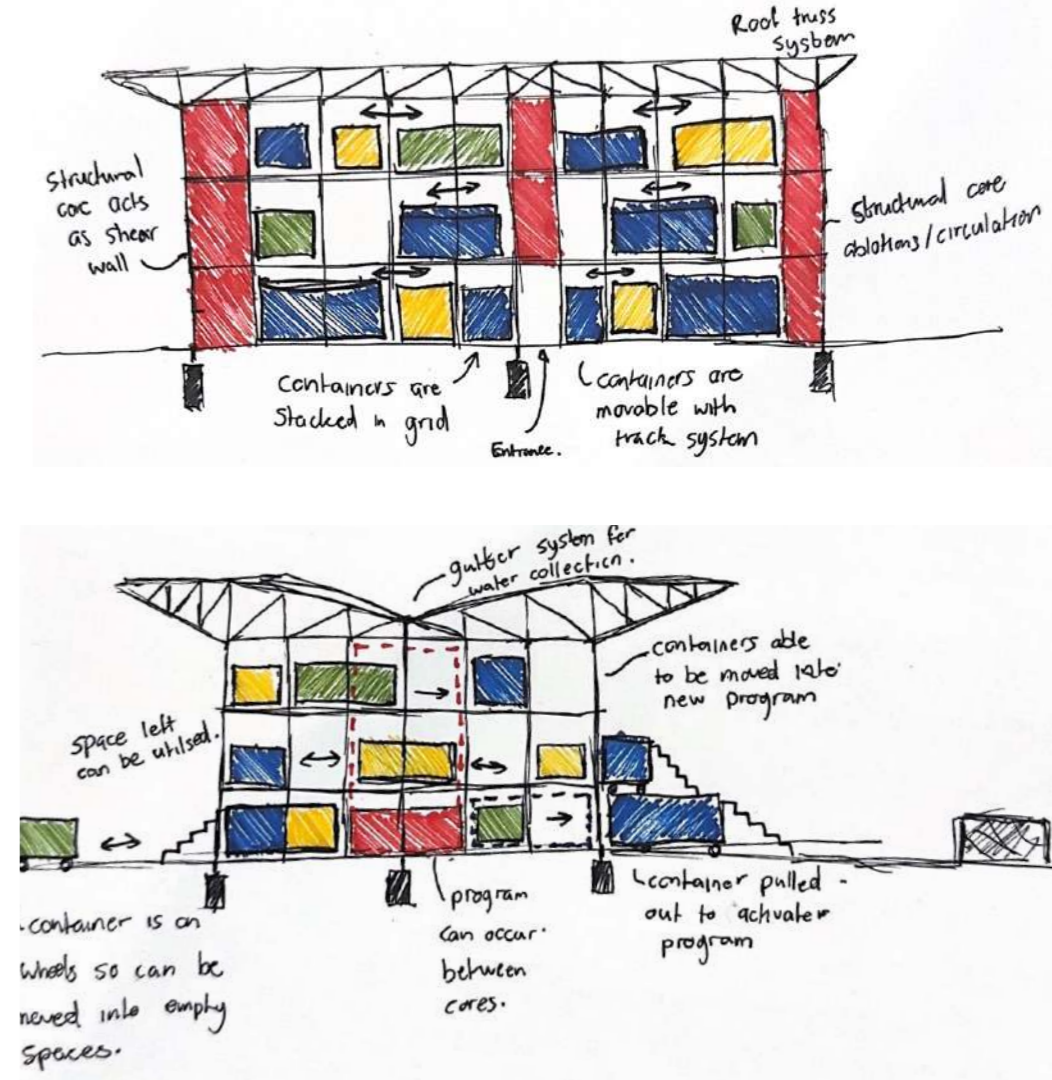 Roof truss
system
Structural
core acts
as shear
wall
Structural core
ablutions/circulation
Containers are
Stacked in grid
Entrance.
Containers are
movable with
track system
gutter system for
water collection.
containers able
to be moved into
new program
space left
can be utilsed.
container is on
wheels so can be
moved into empty
spaces.
program
can occur
between
cores.
container pulled
out to activate
program